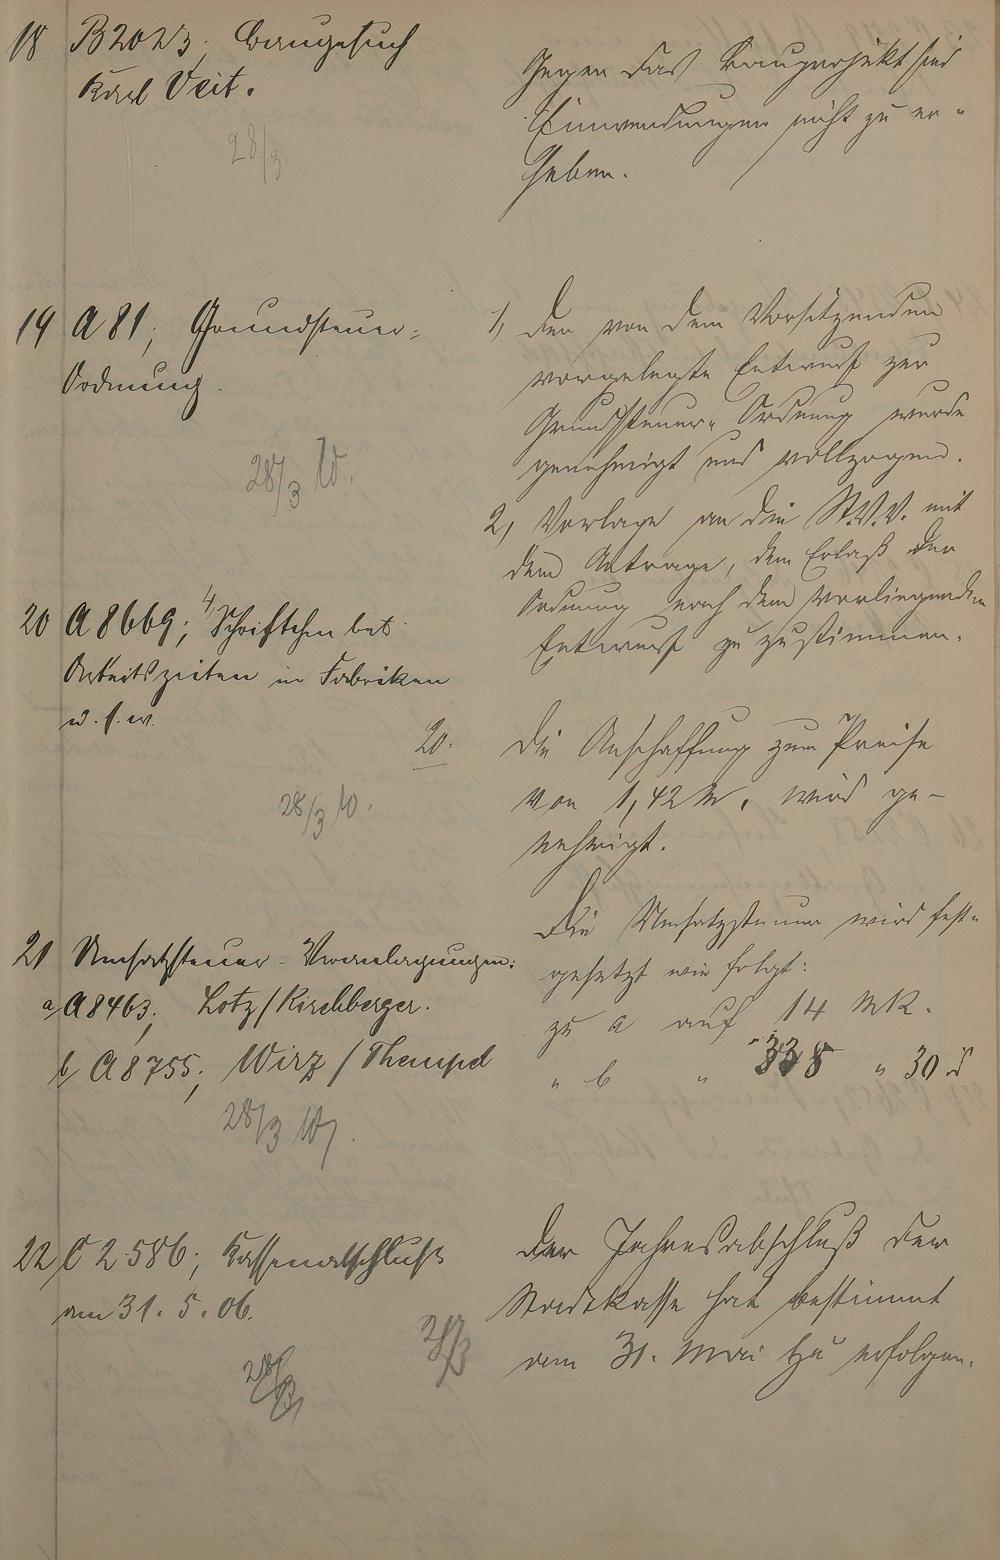 18 B 2023; Baugesuch
Karl Veit.
28/3
Gegen das Bauprojekt sind
Einwendungen nicht zu er-
heben.
19 A 81; Grundsteuer-
Ordnung.
28/3 W.
1, Der von dem Vorsitzenden
vorgelegte Entwurf zur
Grundsteuer-Ordnung wurde
genehmigt und vollzogen.
2, Vorlage an die St.V.V. mit
dem Antrage, dem Erlaß der
Ordnung nach dem vorliegenden
Entwurf zuzustimmen.
20 A 8669; Schriftchen betr.
Arbeitszeiten in Fabriken
u.s.w.
20.
28/3 W.
Die Anschaffung zum Preise
von 1,42 M. wird ge-
nehmigt.
21 Umsatzsteuer-Veranlagungen:
a, A 8463; Lotz/Kirchberger.
b, A 8755; Wirz/
28/3 W.
Die Umsatzsteuer wird fest-
gesetzt wie folgt:
zu a auf 14 Mk.
" b " 338 " 30 d
22 C 2586; Kassenabschluß
am 31.5.06.
28/3
28/3
Der Jahresabschluß der
Stadtkasse hat bestimmt
am 31. Mai zu erfolgen.